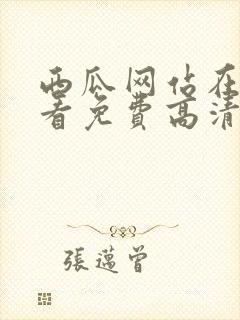 西瓜网站在
看免费高清
張邁曾